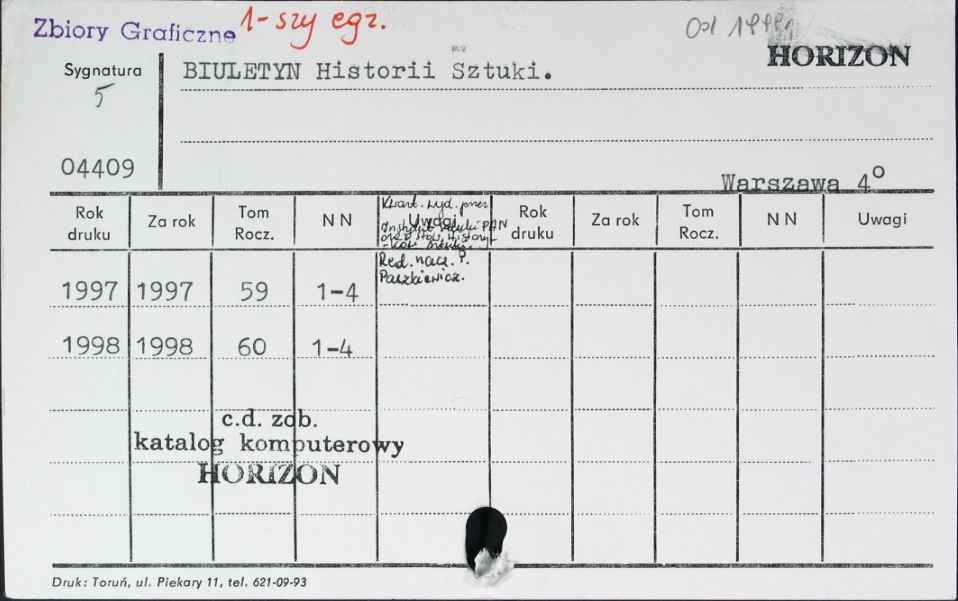 Zbiory Graficzne 1-szy egz.
Od 1999
HORIZON
Sygnatura
5
04409
BIULETYN Historii Sztuki.
Warszawa 4°
Rok druku Za rok Tom Rocz. N N Uwagi Rok druku Za rok Tom Rocz. N N Uwagi
Kwart. wyd. przez
Instytut Sztuki PAN
oraz Stow. History-
-ków Sztuki.
Red. nacz. P.
Paszkiewicz.
1997 1997 59 1-4
1998 1998 60 1-4
c.d. zob.
katalog komputerowy
HORIZON
Druk: Toruń, ul. Piekary 11, tel. 621-09-93